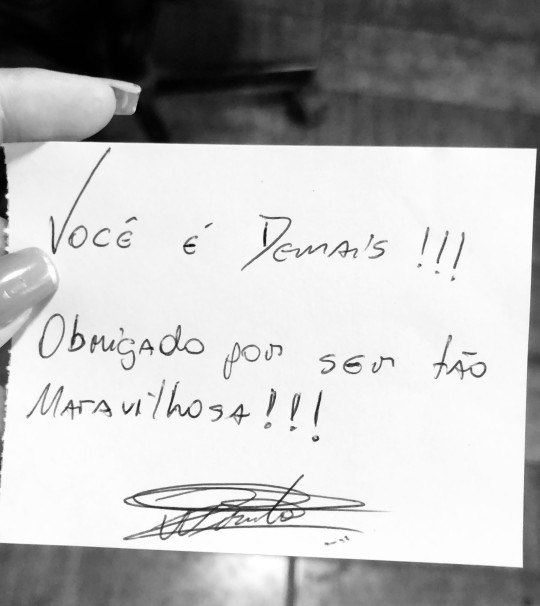 Você é Demais !!!
Obrigado por ser tão
Maravilhosa!!!